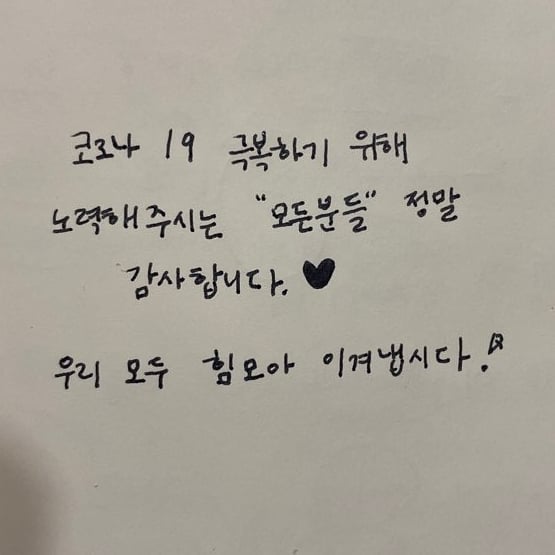 코로나 19 극복하기 위해
노력해주시는 "모든분들" 정말
감사합니다. ♥
우리 모두 힘모아 이겨냅시다!